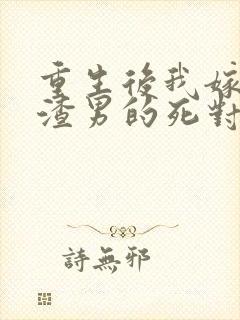 重生後我嫁
渣男的死對
詩無邪